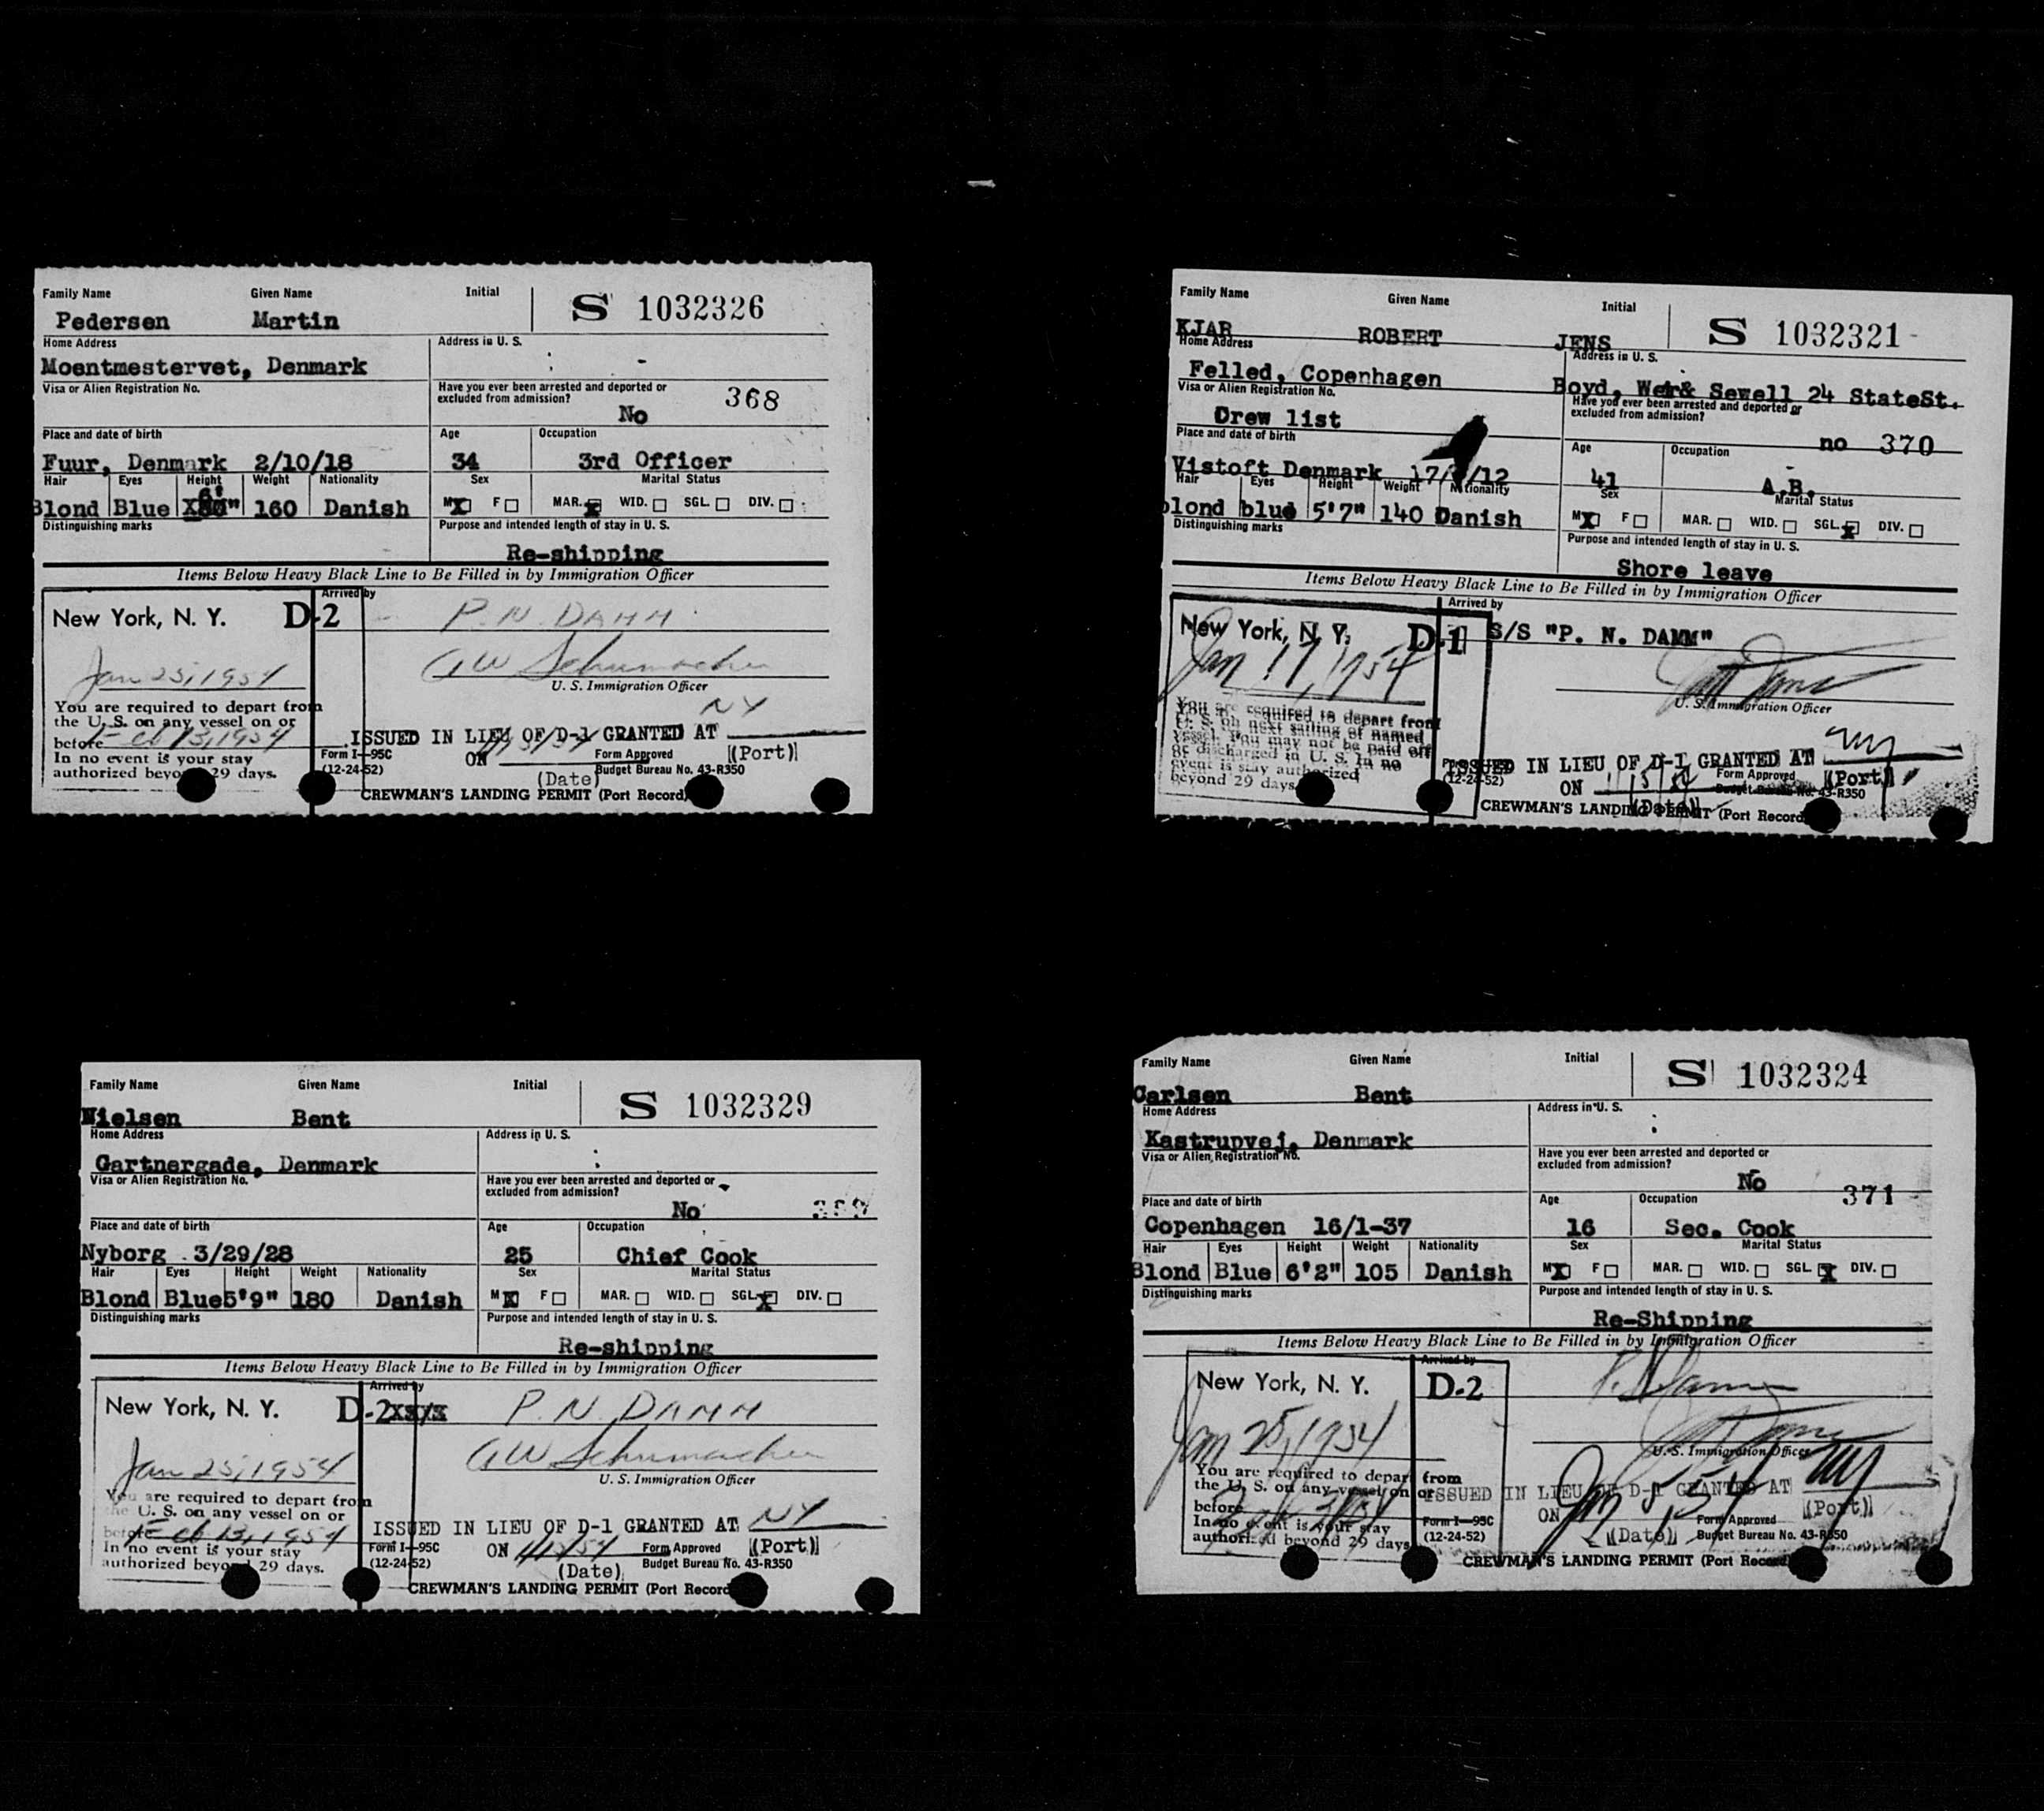 Family Name Given Name Initial
S 1032326
Pedersen Martin
Home Address Address in U. S.
Moentmestervet, Denmark
Visa or Alien Registration No. Have you ever been arrested and deported or
excluded from admission?
No 368
Place and date of birth Age Occupation
Fuur, Denmark 2/10/18 34 3rd Officer
Hair Eyes Height Weight Nationality Sex Marital Status
6'
Blond Blue 160 Danish M X F MAR. X WID. SGL. DIV.
Distinguishing marks Purpose and intended length of stay in U. S.
Re-shipping
Items Below Heavy Black Line to Be Filled in by Immigration Officer
Arrived by
New York, N. Y. D-2 P. N. DAMM
Jan 25, 1954 GW Schumacher
U. S. Immigration Officer
You are required to depart from
the U. S. on any vessel on or
before Feb 13, 1954
In no event is your stay
authorized beyond 29 days.
NY
ISSUED IN LIEU OF D-1 GRANTED AT
ON (Date) (Port)
Form I-95C Form Approved
(12-24-52) Budget Bureau No. 43-R350
CREWMAN'S LANDING PERMIT (Port Record)
Family Name Given Name Initial
S 1032321
KJAR ROBERT JENS
Home Address Address in U. S.
Felled, Copenhagen Boyd, Sewell 24 StateSt.
Visa or Alien Registration No. Have you ever been arrested and deported or
excluded from admission?
Drew list no 370
Place and date of birth Age Occupation
Vistoft Denmark 41 A.B.
Hair Eyes Height Weight Nationality Sex Marital Status
blond blue 5'7" 140 Danish M X F MAR. WID. SGL. X DIV.
Distinguishing marks Purpose and intended length of stay in U. S.
Shore leave
Items Below Heavy Black Line to Be Filled in by Immigration Officer
Arrived by
New York, N. Y. D-1 S/S "P. N. DAMM"
Jan 11, 1954
U. S. Immigration Officer
You are required to depart from
U. S. on next sailing of named
vessel. You may not be paid off
or discharged in U. S. In no
event is stay authorized
beyond 29 days
ISSUED IN LIEU OF D-1 GRANTED AT NY
ON (Date) (Port)
Form Approved
(12-24-52) Budget Bureau No. 43-R350
CREWMAN'S LANDING PERMIT (Port Record
Family Name Given Name Initial
S 1032329
Nielsen Bent
Home Address Address in U. S.
Gartnergade, Denmark
Visa or Alien Registration No. Have you ever been arrested and deported or
excluded from admission?
No
Place and date of birth Age Occupation
Nyborg 3/29/28 25 Chief Cook
Hair Eyes Height Weight Nationality Sex Marital Status
Blond Blue 5'9" 180 Danish M X F MAR. WID. SGL. X DIV.
Distinguishing marks Purpose and intended length of stay in U. S.
Re-shipping
Items Below Heavy Black Line to Be Filled in by Immigration Officer
Arrived by
New York, N. Y. D-2 P. N. DAMM
Jan 25, 1954 GW Schumacher
U. S. Immigration Officer
You are required to depart from
the U. S. on any vessel on or
before Feb 13, 1954
In no event is your stay
authorized beyond 29 days.
ISSUED IN LIEU OF D-1 GRANTED AT NY
ON (Date) (Port)
Form I-95C Form Approved
(12-24-52) Budget Bureau No. 43-R350
CREWMAN'S LANDING PERMIT (Port Record
Family Name Given Name Initial
S 1032324
Carlsen Bent
Home Address Address in U. S.
Kastrupvej, Denmark
Visa or Alien Registration No. Have you ever been arrested and deported or
excluded from admission?
No 371
Place and date of birth Age Occupation
Copenhagen 16/1-37 16 Sec. Cook
Hair Eyes Height Weight Nationality Sex Marital Status
Blond Blue 6'2" 105 Danish M X F MAR. WID. SGL. X DIV.
Distinguishing marks Purpose and intended length of stay in U. S.
Re-Shipping
Items Below Heavy Black Line to Be Filled in by Immigration Officer
Arrived by
New York, N. Y. D-2
Jan 25, 1954
U. S. Immigration Officer
You are required to depart from
the U. S. on any vessel on or
before
In no event is your stay
authorized beyond 29 days
ISSUED IN LIEU OF D-1 GRANTED AT NY
ON Jan 5, 54 (Date) (Port)
Form I-95C Form Approved
(12-24-52) Budget Bureau No. 43-R350
CREWMAN'S LANDING PERMIT (Port Record)